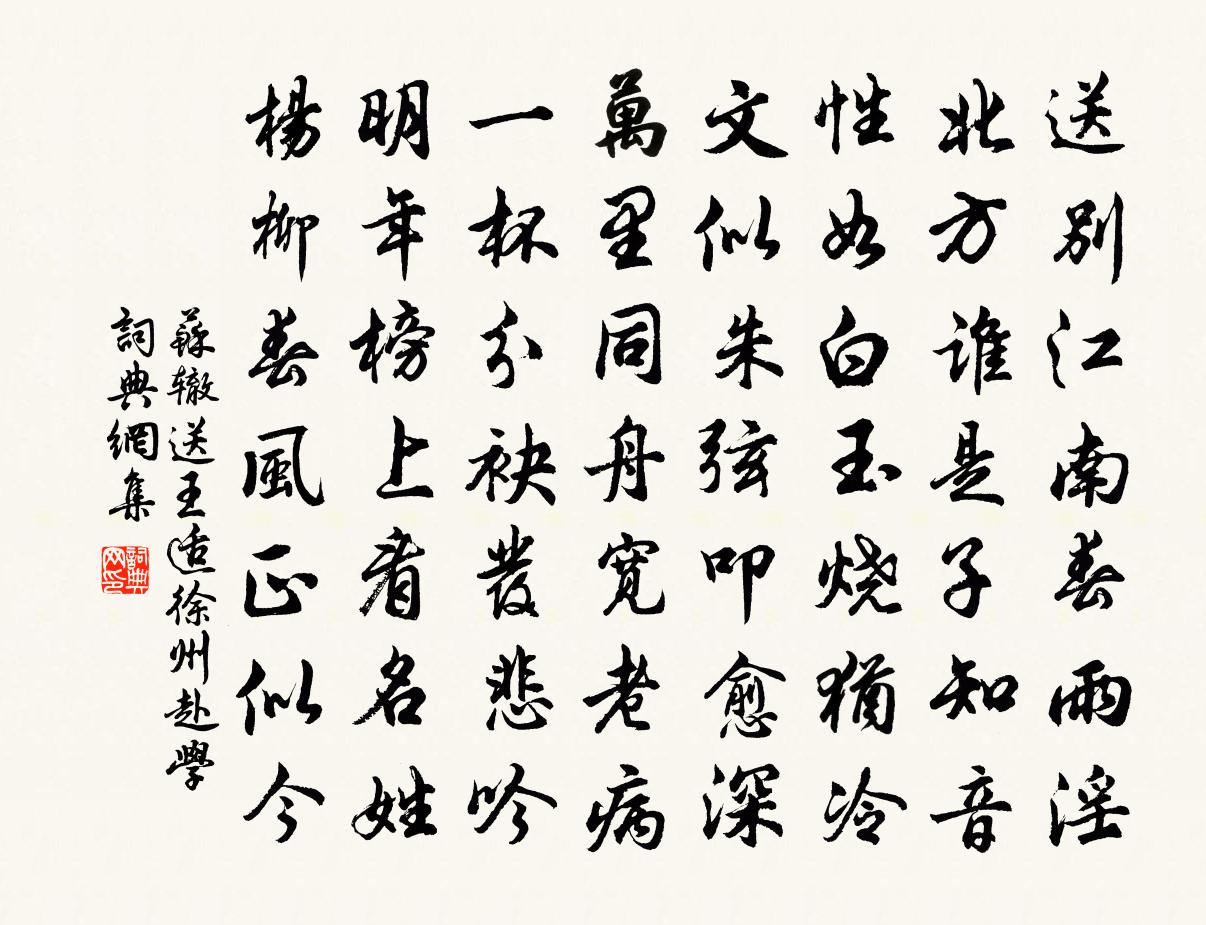 送别江南春雨淫
北方谁是子知音
性如白玉烧犹冷
文似朱弦叩愈深
萬里同舟寬老病
一杯分袂發悲吟
明年榜上看名姓
楊柳春風正似今
蘇辙送王适徐州赴學
詞典網集
詞典网印